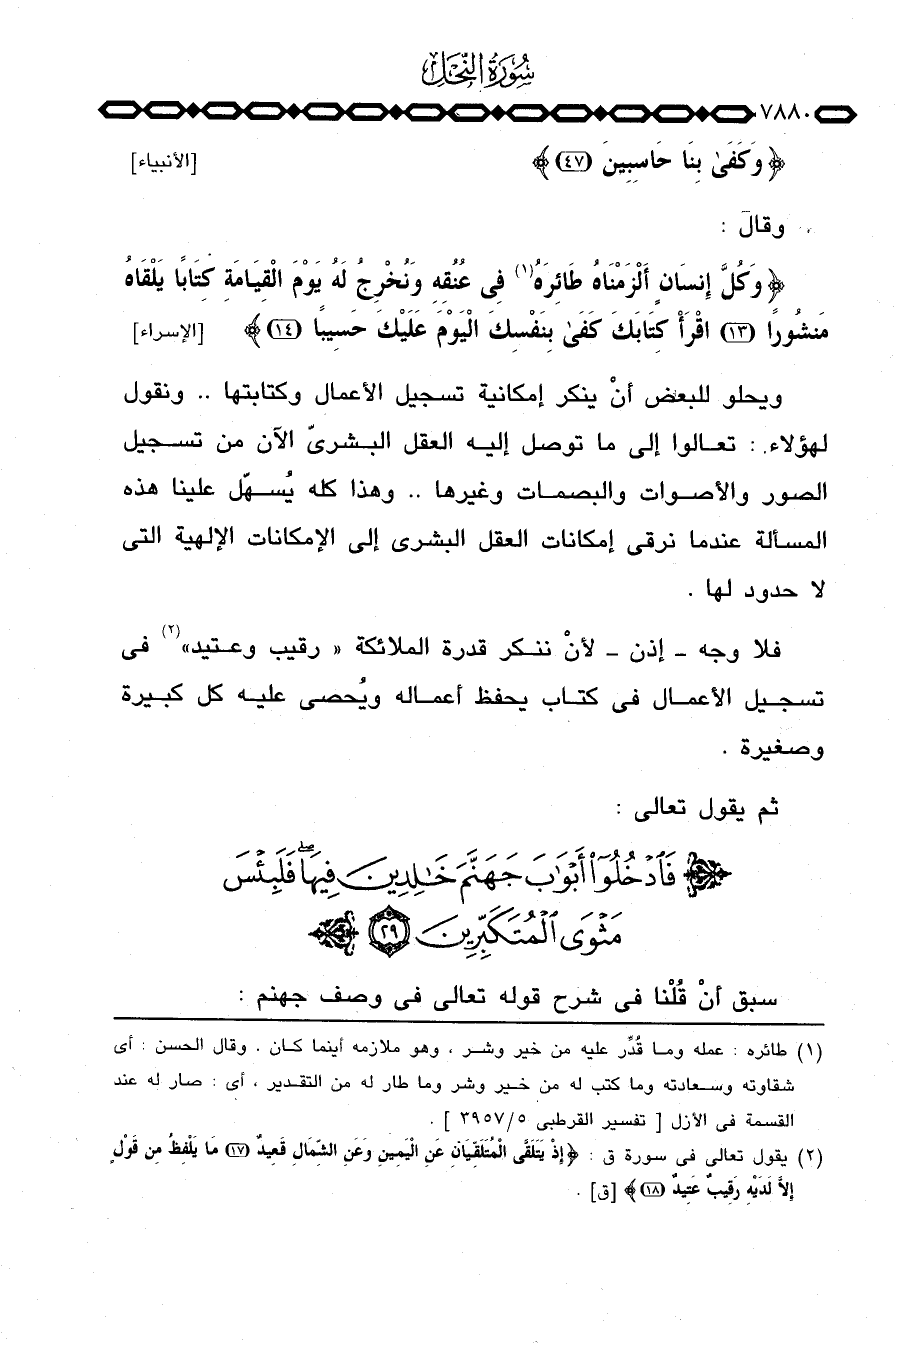 سُورَةُ النَّحْلِ
٧٨٨٠
﴿وَكَفَىٰ بِنَا حَاسِبِينَ (٤٧)﴾ [الأنبياء]
وقالَ :
﴿وَكُلَّ إِنسَانٍ أَلْزَمْنَاهُ طَائِرَهُ(١) فِي عُنُقِهِ وَنُخْرِجُ لَهُ يَوْمَ الْقِيَامَةِ كِتَابًا يَلْقَاهُ
مَنشُورًا (١٣) اقْرَأْ كِتَابَكَ كَفَىٰ بِنَفْسِكَ الْيَوْمَ عَلَيْكَ حَسِيبًا (١٤)﴾ [الإسراء]
ويحلو للبعض أنْ ينكر إمكانية تسجيل الأعمال وكتابتها .. ونقول
لهؤلاء : تعالوا إلى ما توصل إليه العقل البشرىّ الآن من تسجيل
الصور والأصوات والبصمات وغيرها .. وهذا كله يُسهّل علينا هذه
المسألة عندما نرقى إمكانات العقل البشرى إلى الإمكانات الإلهية التى
لا حدود لها .
فلا وجه ـ إذن ـ لأنْ ننكر قدرة الملائكة « رقيب وعتيد»(٢) فى
تسجيل الأعمال فى كتاب يحفظ أعماله ويُحصى عليه كل كبيرة
وصغيرة .
ثم يقول تعالى :
فَٱدْخُلُوٓا۟ أَبْوَٰبَ جَهَنَّمَ خَٰلِدِينَ فِيهَا ۖ فَلَبِئْسَ
مَثْوَى ٱلْمُتَكَبِّرِينَ ٢٩
سبق أنْ قُلْنا فى شرح قوله تعالى فى وصف جهنم :
(١) طائره : عمله وما قُدِّر عليه من خير وشر ، وهو ملازمه أينما كان . وقال الحسن : أى
شقاوته وسعادته وما كتب له من خير وشر وما طار له من التقدير ، أى : صار له عند
القسمة فى الأزل [ تفسير القرطبى ٣٩٥٧/٥ ] .
(٢) يقول تعالى فى سورة ق : ﴿إِذْ يَتَلَقَّى الْمُتَلَقِّيَانِ عَنِ الْيَمِينِ وَعَنِ الشِّمَالِ قَعِيدٌ (١٧) مَا يَلْفِظُ مِن قَوْلٍ
إِلاَّ لَدَيْهِ رَقِيبٌ عَتِيدٌ (١٨)﴾ [ق] .